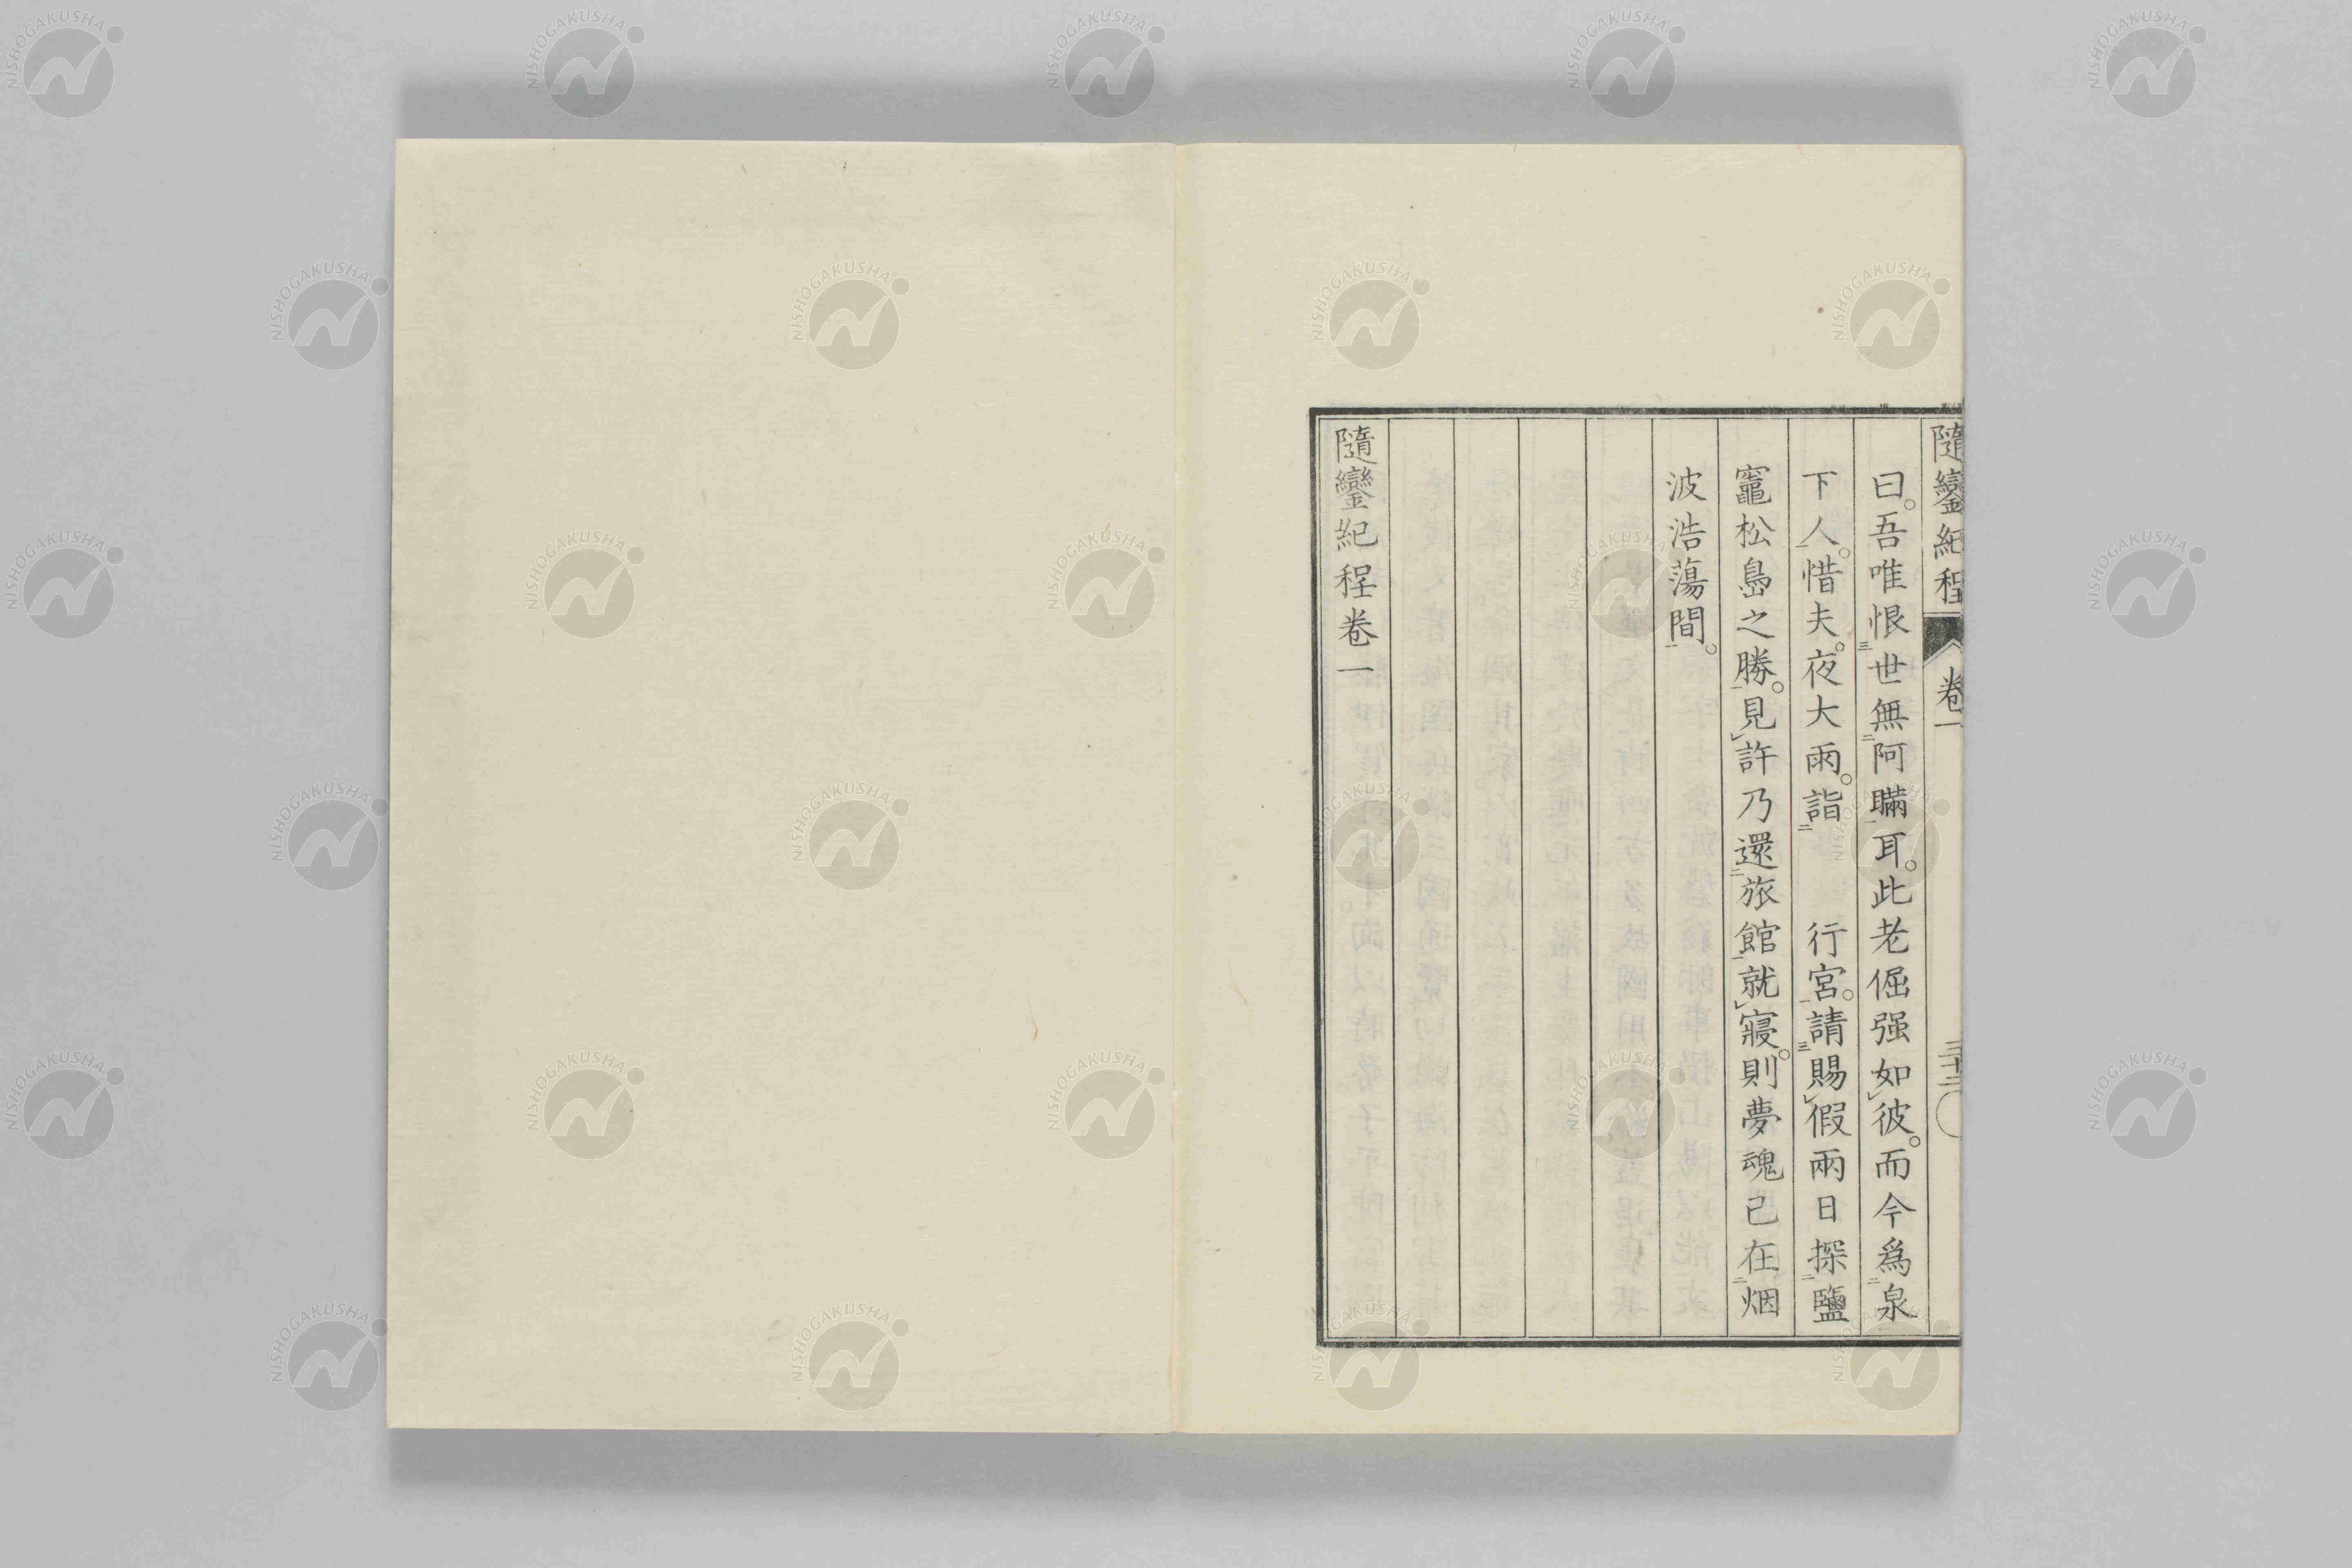 隨鑾紀程 卷一 三十二
曰。吾唯恨世無阿瞞耳。此老倔强如彼。而今爲泉
下人。惜夫。夜大雨。詣 行宮。請賜假兩日探鹽
竈松島之勝。見許乃還旅館就寢。則夢魂已在烟
波浩蕩間。
隨鑾紀程卷一
NISHOGAKUSHA